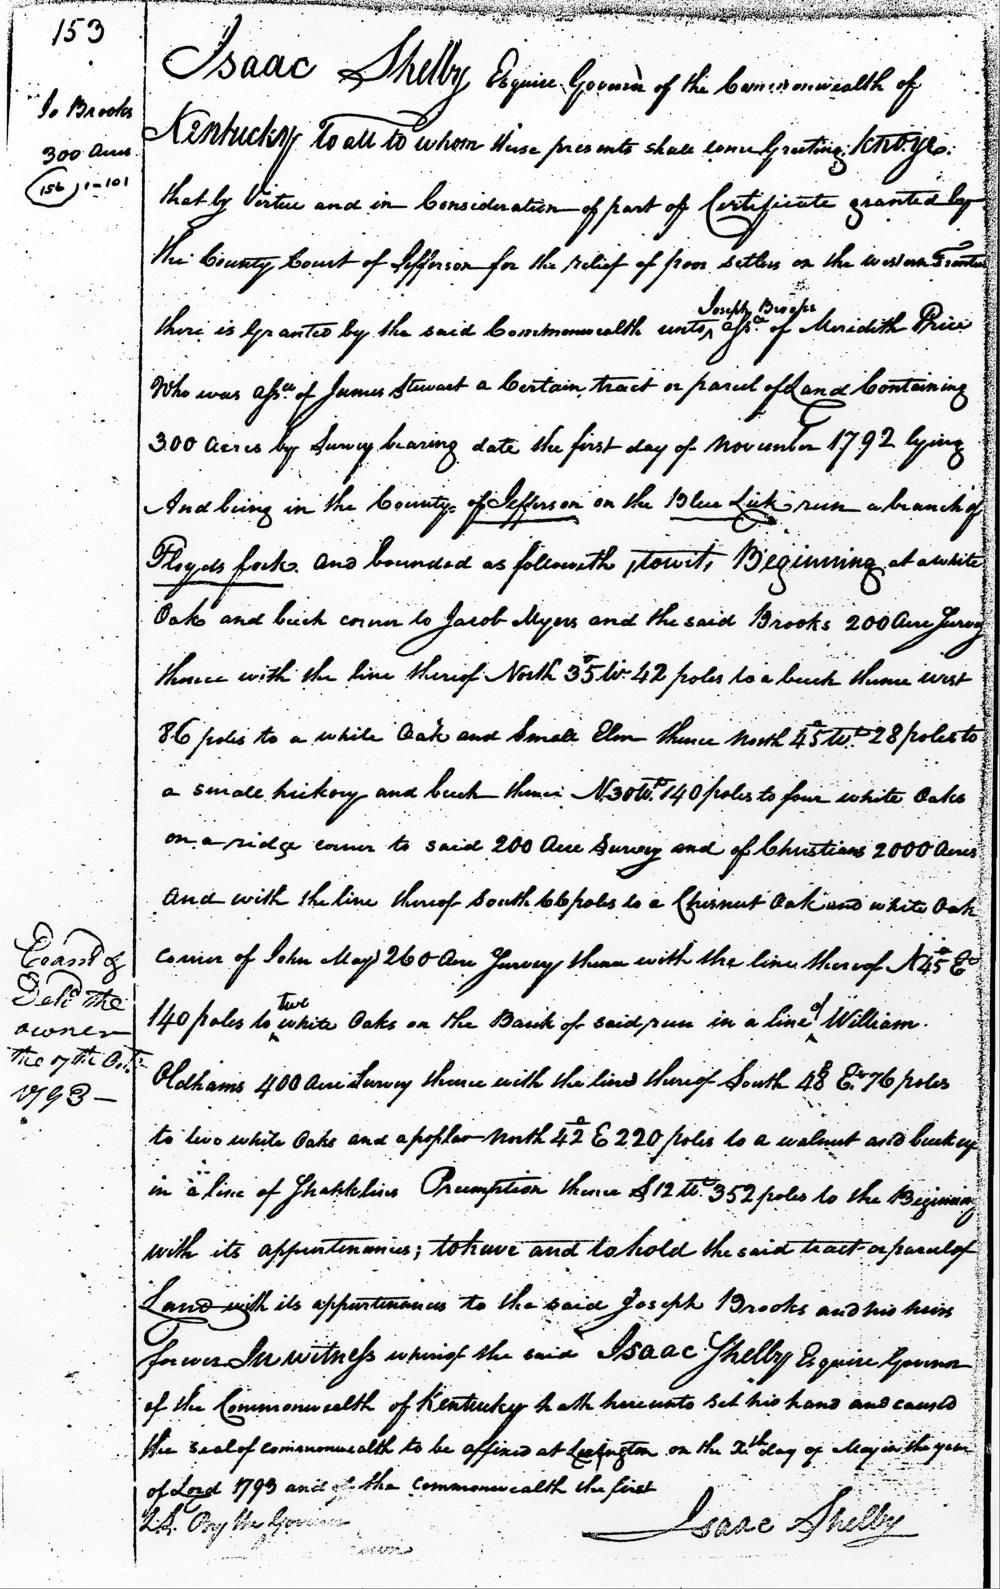 153
Jo Brooks
300 Acres
156 1-101
Isaac Shelby Esquire Governor of the Commonwealth of
Kentucky To all to whom these presents shall come Greeting; Know ye:
that by Virtue and in Consideration of part of Certificate granted by
the County Court of Jefferson for the relief of poor settlers on the western
there is Granted by the said Commonwealth unto Joseph Brooks assee of Meridith Price
Who was assee of James Stewart a Certain tract or parcel of Land Containing
300 Acres by Survey bearing date the first day of November 1792 lying
And being in the County of Jefferson on the Blue Lick run a branch of
Floyds fork. And bounded as followith, towit, Beginning at a white
Oak and beech corner to Jacob Myers and the said Brooks 200 Acre Survey
thence with the line thereof North 35 W 42 poles to a beech thence west
86 poles to a white Oak and Small Elm thence North 45 Wt 28 poles to
a small hickory and beech thence N 30 Wt 140 poles to four white Oaks
on a ridge corner to said 200 Acre Survey and of Christians 2000 Acres
And with the line thereof South 66 poles to a Chesnut Oak and white Oak
corner of John May 260 Acre Survey thence with the line thereof N 45 E
140 poles to two white Oaks on the Bank of said run in a line of William
Oldhams 400 Acre Survey thence with the line thereof South 48 E 76 poles
to two white Oaks and a poplar North 42 E 220 poles to a walnut and beech
in a line of Preemption thence S 12 Wt 352 poles to the Begining
with its appurtenances; to have and to hold the said tract or parcel of
Land with its appurtenances to the said Joseph Brooks and his heirs
forever In witness whereof the said Isaac Shelby Esquire Governor
of the Commonwealth of Kentucky hath hereunto set his hand and caused
the seal of commonwealth to be affixed at Lexington on the Xth day of May in the year
of Lord 1793 and of the commonwealth the first
L.S. By the Governor
Isaac Shelby
Examd &
Deld the
owner
the 7th Oct
1793 —